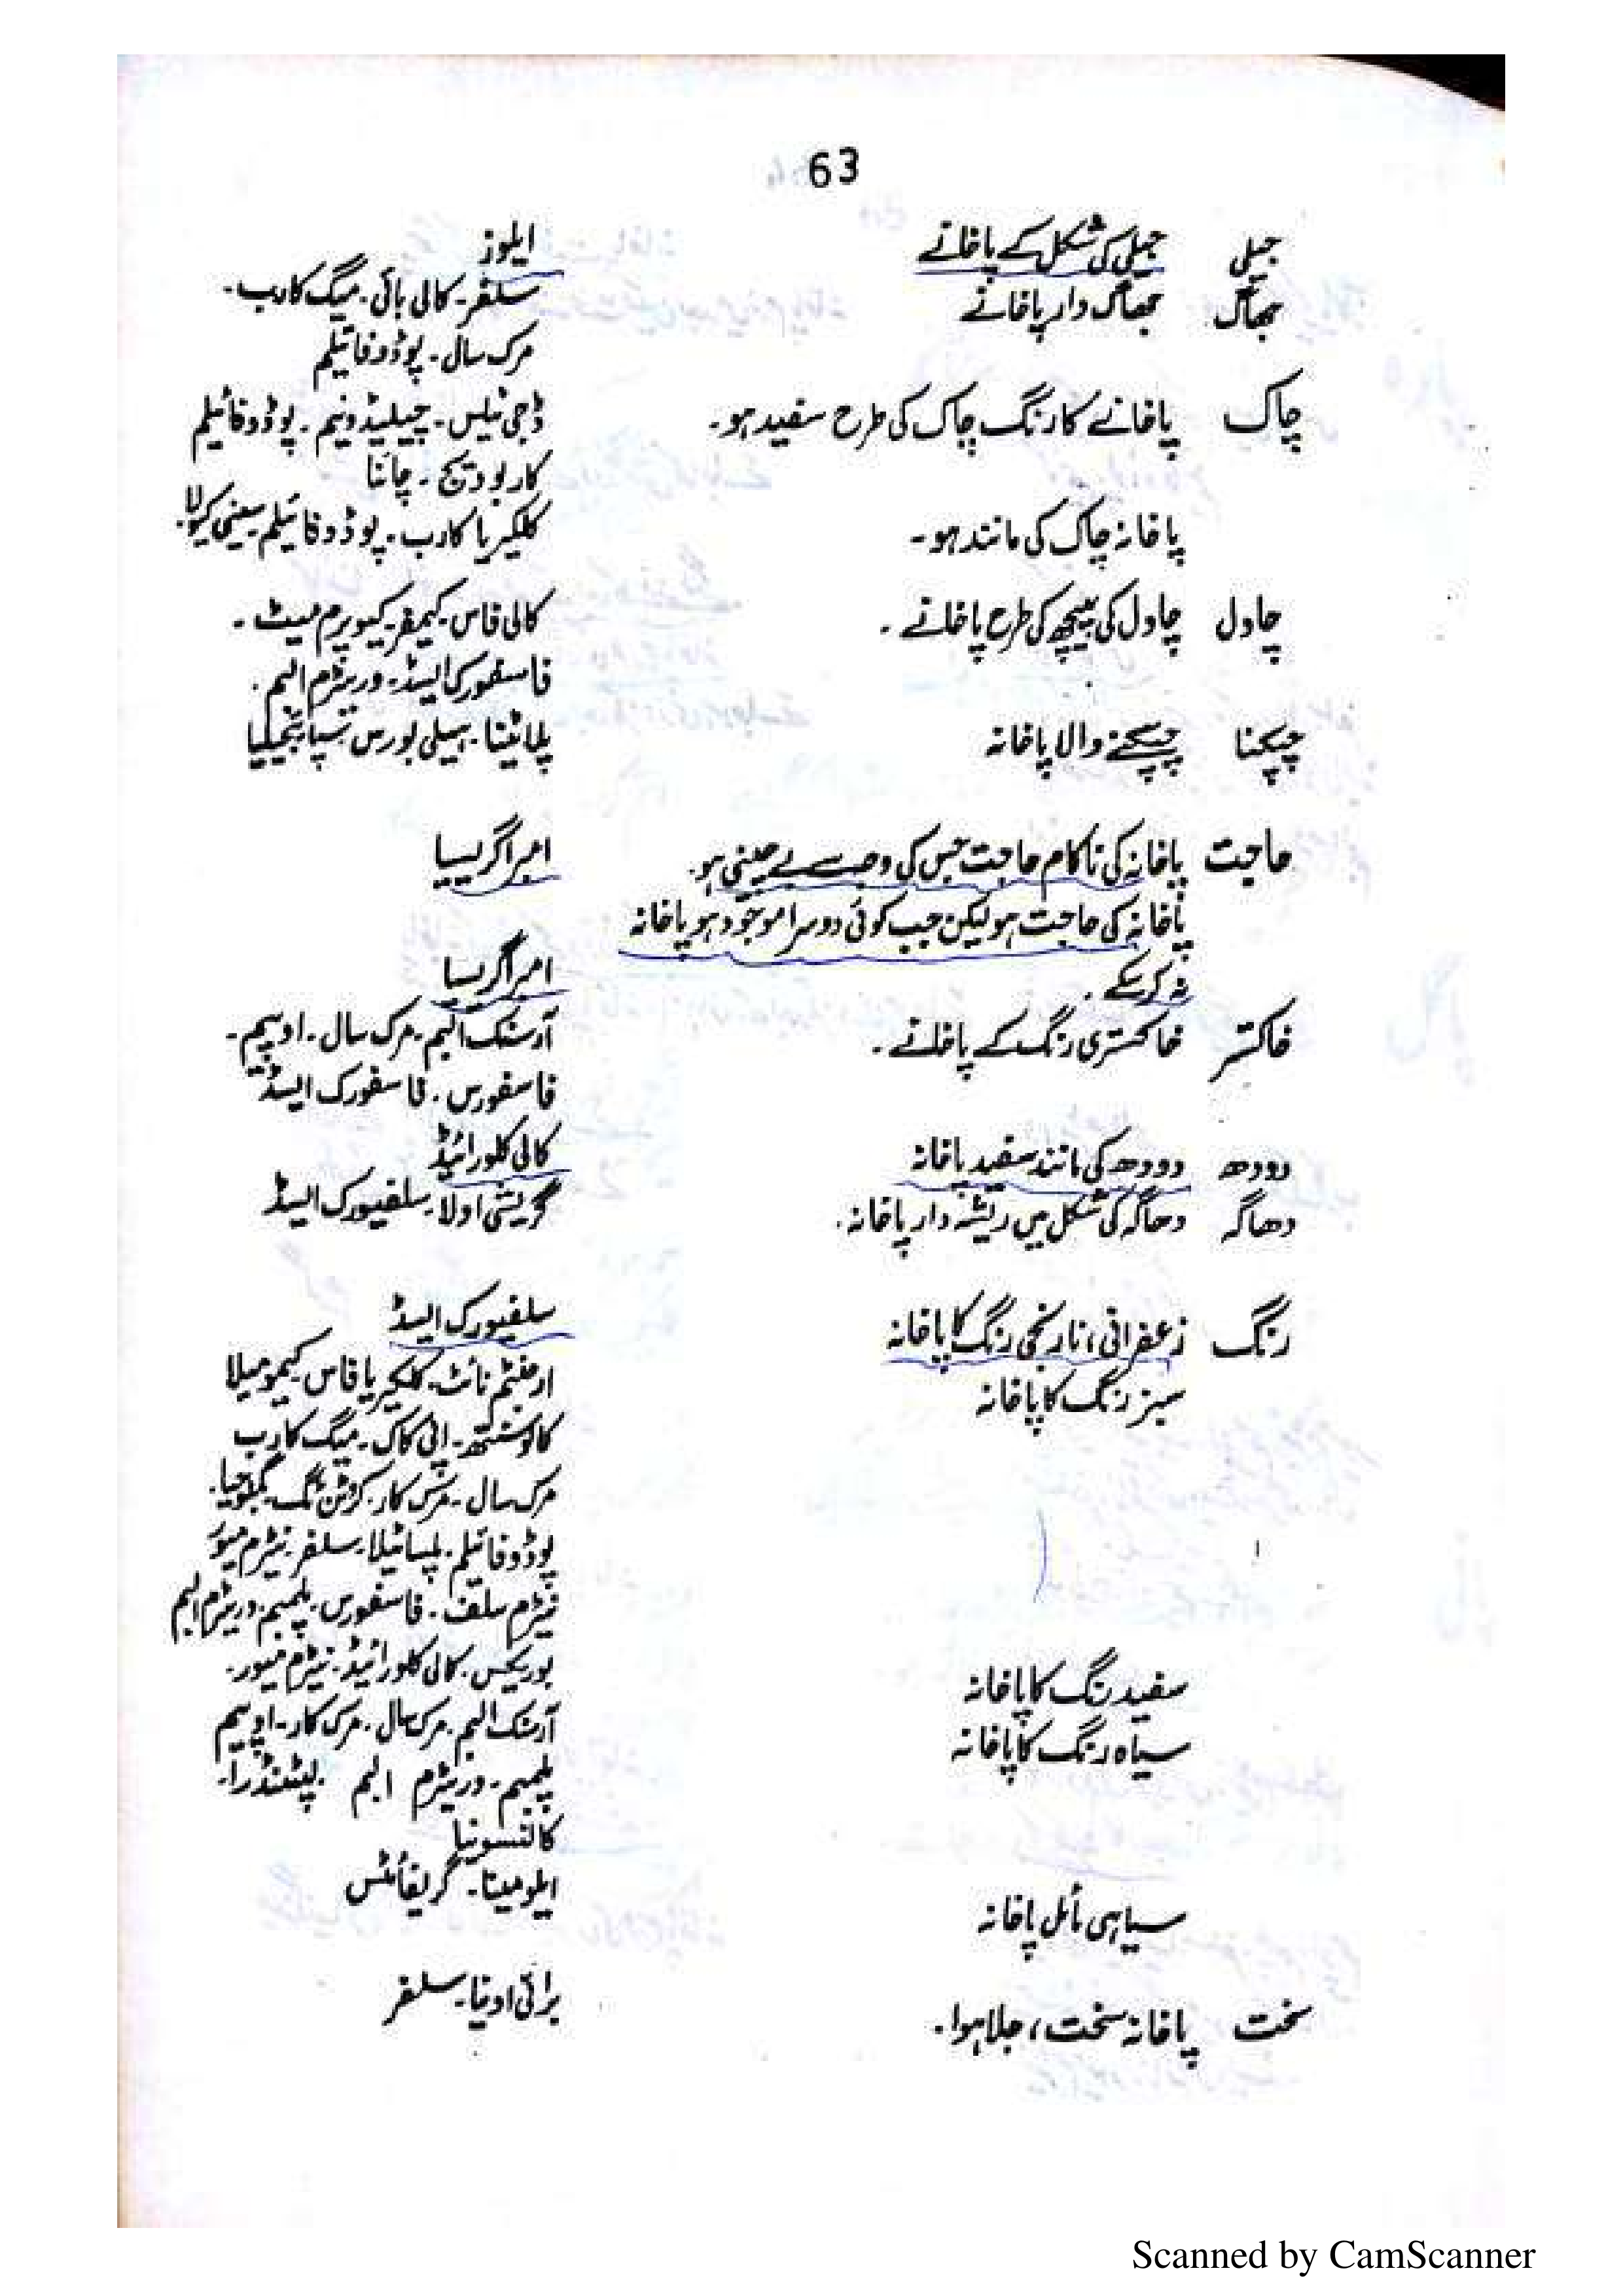 63
جیلی جیلی کی شکل کے پاخانے ایلوز
جھاگ جھاگ دار پاخانے سلفر۔ کالی بائی۔ میگ کارب۔
مرک سال۔ پوڈوفائیلم
چاک پاخانے کا رنگ چاک کی طرح سفید ہو۔ ڈجی ٹیلس۔ چیلیڈونیم۔ پوڈوفائیلم
کاربو ویج۔ چائنا
پاخانہ چاک کی مانند ہو۔ کلکیریا کارب۔ پوڈوفائیلم۔ سینی کیولا۔
چاول چاول کی پیچھ کی طرح پاخانے۔ کالی فاس۔ کیمفر۔ کیوپرم میٹ۔
فاسفورک ایسڈ۔ وریٹرم البم۔
چپکنا چپکنے والا پاخانہ پلاٹینا۔ ہیلی بورس
حاجت پاخانہ کی ناکام حاجت جس کی وجہ سے بے چینی ہو۔ امبراگریسیا
پاخانہ کی حاجت ہو لیکن جب کوئی دوسرا موجود ہو پاخانہ
نہ کر سکے۔ امبراگریسیا
خاکستر خاکستری رنگ کے پاخانے۔ آرسنک البم۔ مرک سال۔ اوپیم۔
فاسفورس۔ فاسفورک ایسڈ
دودھ دودھ کی مانند سفید پاخانہ کالی کلورائیڈ
دھاگہ دھاگہ کی شکل میں ریشہ دار پاخانہ۔ گریشی اولا۔ سلفیورک ایسڈ
رنگ زعفرانی، نارنجی رنگ کا پاخانہ سلفیورک ایسڈ
سبز رنگ کا پاخانہ ارجنٹم نائٹ۔ کلکیریا فاس۔ کیمومیلا
اپی کاک۔ میگ کارب
مرک سال۔ مرک کار۔ کروٹن ٹگ۔ گمبوجیا۔
پوڈوفائیلم۔ پلساٹیلا۔ سلفر۔ نیٹرم میور
نیٹرم سلف۔ فاسفورس۔ پلمبم۔ وریٹرم البم
سفید رنگ کا پاخانہ بوریکس۔ کالی کلورائیڈ۔ نیٹرم میور۔
سیاہ رنگ کا پاخانہ آرسنک البم۔ مرک سال۔ مرک کار۔ اوپیم
پلمبم۔ وریٹرم البم۔ لپٹنڈرا۔
کالنسونیا
سیاہی مائل پاخانہ ایلومینا۔ گریفائٹس
سخت پاخانہ سخت، جلا ہوا۔ برائی اونیا۔ سلفر
Scanned by CamScanner